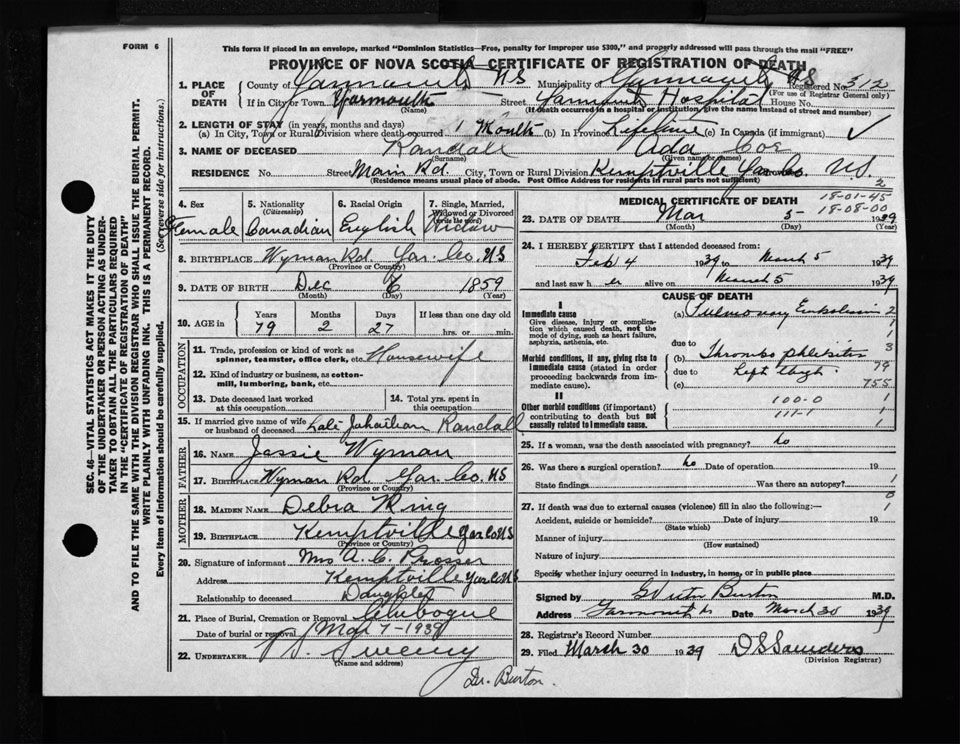 FORM 6
This form if placed in an envelope, marked "Dominion Statistics—Free, penalty for improper use $300," and properly addressed will pass through the mail "FREE"
PROVINCE OF NOVA SCOTIA—CERTIFICATE OF REGISTRATION OF DEATH
1. PLACE OF DEATH County of Yarmouth NS Municipality of Yarmouth NS Registered No. 312
(For use of Registrar General only)
If in City or Town Yarmouth Street Yarmouth Hospital House No.
(Name) (If death occurred in a hospital or institution, give the name instead of street and number)
2. LENGTH OF STAY (in years, months and days)
(a) In City, Town or Rural Division where death occurred 1 Month (b) In Province Lifetime (c) In Canada (if immigrant)
3. NAME OF DECEASED Randall Ada Coe
(Surname) (Given name or names)
RESIDENCE No. Street Main Rd. City, Town or Rural Division Kemptville Yar Co. NS.
(Residence means usual place of abode. Post Office Address for residents in rural parts not sufficient)
4. Sex Female
5. Nationality (Citizenship) Canadian
6. Racial Origin English
7. Single, Married, Widowed or Divorced (write the word) Widow
8. BIRTHPLACE Wyman Rd. Yar. Co. NS
(Province or Country)
9. DATE OF BIRTH Dec 6 1859
(Month) (Day) (Year)
10. AGE in Years Months Days If less than one day old
79 2 27 hrs. or min.
OCCUPATION
11. Trade, profession or kind of work as spinner, teamster, office clerk, etc. Housewife
12. Kind of industry or business, as cotton-mill, lumbering, bank, etc.
13. Date deceased last worked at this occupation
14. Total years spent in this occupation
15. If married give name of wife or husband of deceased Randall
FATHER
16. NAME Jessie Wyman
17. BIRTHPLACE Wyman Rd. Yar. Co. NS
(Province or Country)
MOTHER
18. MAIDEN NAME Debra King
19. BIRTHPLACE Kemptville Yar Co NS
(Province or Country)
20. Signature of informant Mrs A. C. Prosser
Address Kemptville Yar Co NS
Relationship to deceased Daughter
21. Place of Burial, Cremation or Removal Chebogue
Date of burial or removal Mar 7-1939
22. UNDERTAKER Sweeny
(Name and address)
Dr. Burton.
2
MEDICAL CERTIFICATE OF DEATH 18-01-45
18-08-00
23. DATE OF DEATH Mar 5- 1939
(Month) (Day) (Year)
24. I HEREBY CERTIFY that I attended deceased from:
Feb 4 1939 to March 5 1939
and last saw her alive on March 5 1939
CAUSE OF DEATH
I
Immediate cause (a) Pulmonary Embolism 2
Give disease, injury or complication which caused death, not the mode of dying, such as heart failure, asphyxia, asthenia, etc. 1
1
due to 3
Morbid conditions, if any, giving rise to immediate cause (stated in order proceeding backwards from immediate cause). (b) Thrombo phlebitis 79
due to Left thigh.
(c) 755
II
100-0 1
Other morbid conditions (if important) contributing to death but not causally related to immediate cause. 111-1 1
1
25. If a woman, was the death associated with pregnancy? no
26. Was there a surgical operation? no Date of operation 19
State findings Was there an autopsy? 1
27. If death was due to external causes (violence) fill in also the following:— 1
Accident, suicide or homicide? Date of injury 19
(State which)
Manner of injury
(How sustained)
Nature of injury
Specify whether injury occurred in industry, in home, or in public place
Signed by G Victor Burton M.D.
Address Yarmouth Date March 30 1939
28. Registrar's Record Number
29. Filed March 30 1939 D S Saunders
(Division Registrar)
SEC. 46—VITAL STATISTICS ACT MAKES IT THE DUTY
OF THE UNDERTAKER OR PERSON ACTING AS UNDER-
TAKER TO OBTAIN ALL THE PARTICULARS REQUIRED
IN THE "CERTIFICATE OF REGISTRATION OF DEATH"
AND TO FILE THE SAME WITH THE DIVISION REGISTRAR WHO SHALL ISSUE THE BURIAL PERMIT.
WRITE PLAINLY WITH UNFADING INK. THIS IS A PERMANENT RECORD.
Every item of information should be carefully supplied. (See reverse side for instructions.)